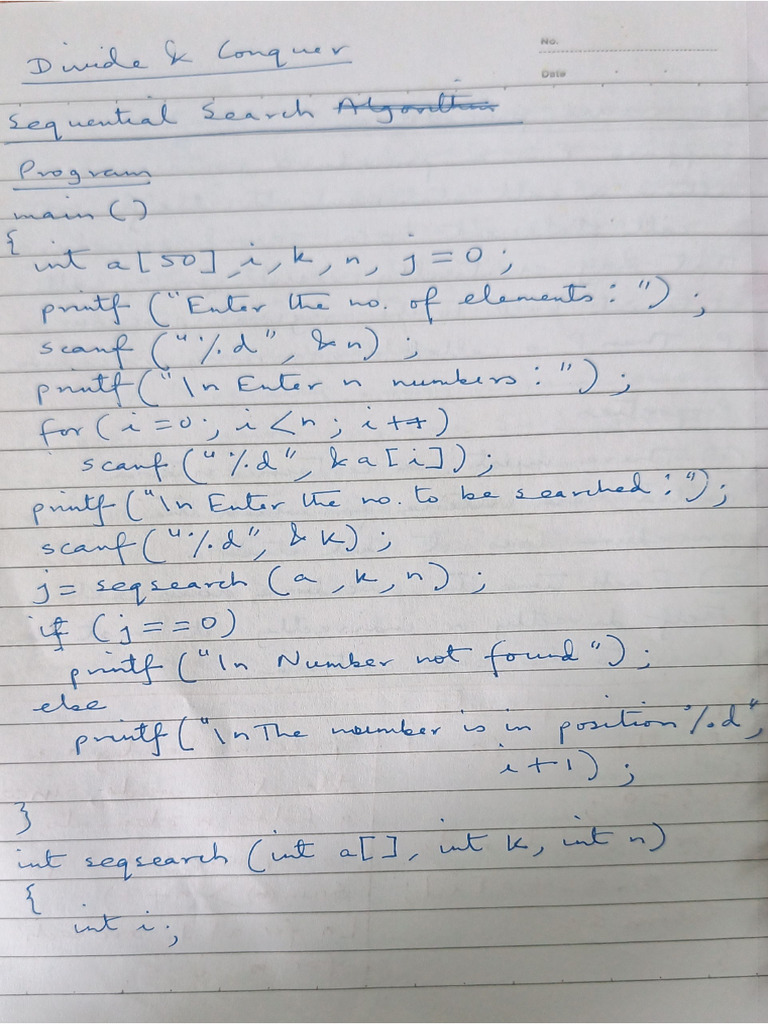 No.
Date
Divide & Conquer
Sequential Search Algorithm
Program
main ()
{
int a[50], i, k, n, j = 0;
printf ("Enter the no. of elements : ");
scanf ("%d", &n);
printf ("\n Enter n numbers : ");
for (i = 0; i < n; i++)
scanf ("%d", &a[i]);
printf ("\n Enter the no. to be searched : ");
scanf ("%d", &k);
j = seqsearch (a, k, n);
if (j == 0)
printf ("\n Number not found");
else
printf ("\n The number is in position %d",
i+1);
}
int seqsearch (int a[], int k, int n)
{
int i;